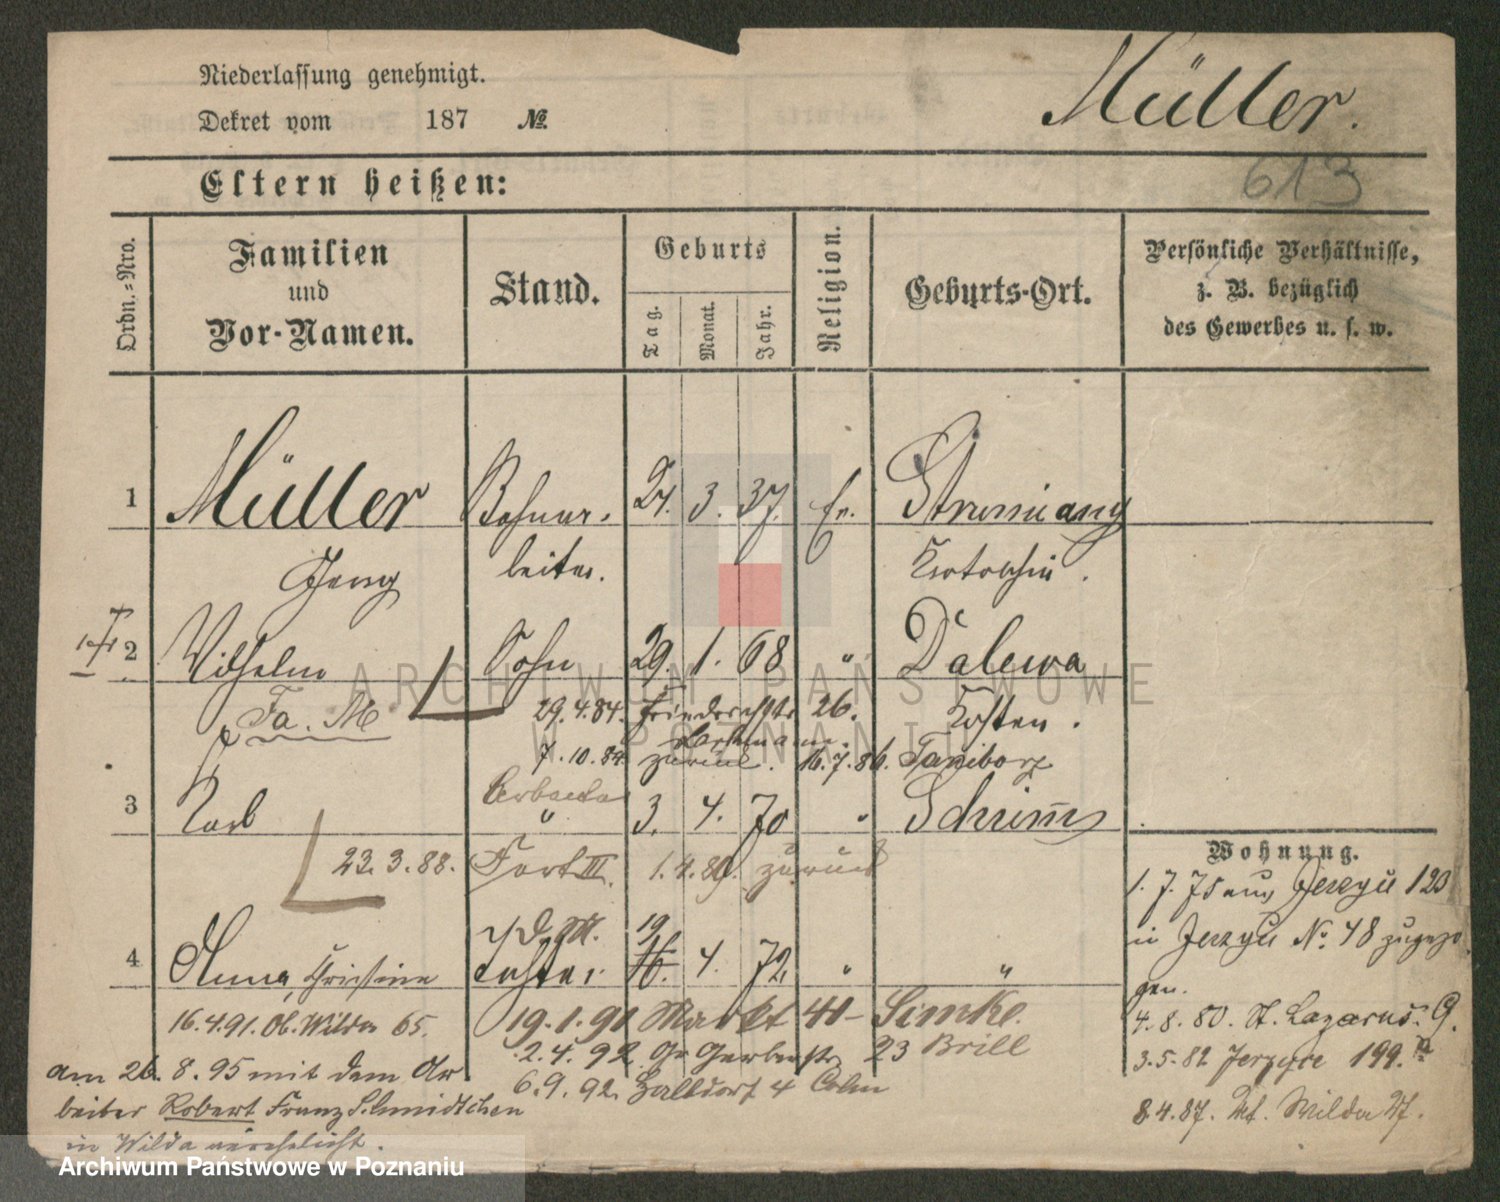 Niederlassung genehmigt.
Müller.
Dekret vom 187 №
613
Eltern heißen:
Ordn.-Nro.
Familien
und
Vor-Namen.
Stand.
Geburts
Tag.
Monat.
Jahr.
Religion.
Geburts-Ort.
Persönliche Verhältnisse,
z. B. bezüglich
des Gewerbes u. s. w.
1 Müller Bahnar- 3. 37. Ev.
beiter. Krotoschin.
2 Wilhelm Sohn 29. 1. 68 " Dalewa
Fa. M. 29.4.84. 26. Kosten.
7.10.84 zurück. 16.7.86.
3 Karl " 3. 4. 70 " Schrimm
23.3.88. Fort III. zurück
Wohnung.
1.7.75 aus Jerzyce 123
in Jerzyce No. 48 zugezo
gen.
4 Anna, Christine Tochter 19 4. 72 " "
16.4.91. Ob. Wilda 65. 19.1.91 Markt 41 Simke.
4.8.80. St. Lazarus. 9.
2.4.92 Gr Gerberstr 23 Brill
3.5.82 Jerzyce 199.
am 26.8.95 mit dem Ar
6.9.92.
beiter Robert Franz Schmidtchen
8.4.87. Wilda 27.
in Wilda verehelicht.
ARCHIWUM PAŃSTWOWE
W POZNANIU
Archiwum Państwowe w Poznaniu